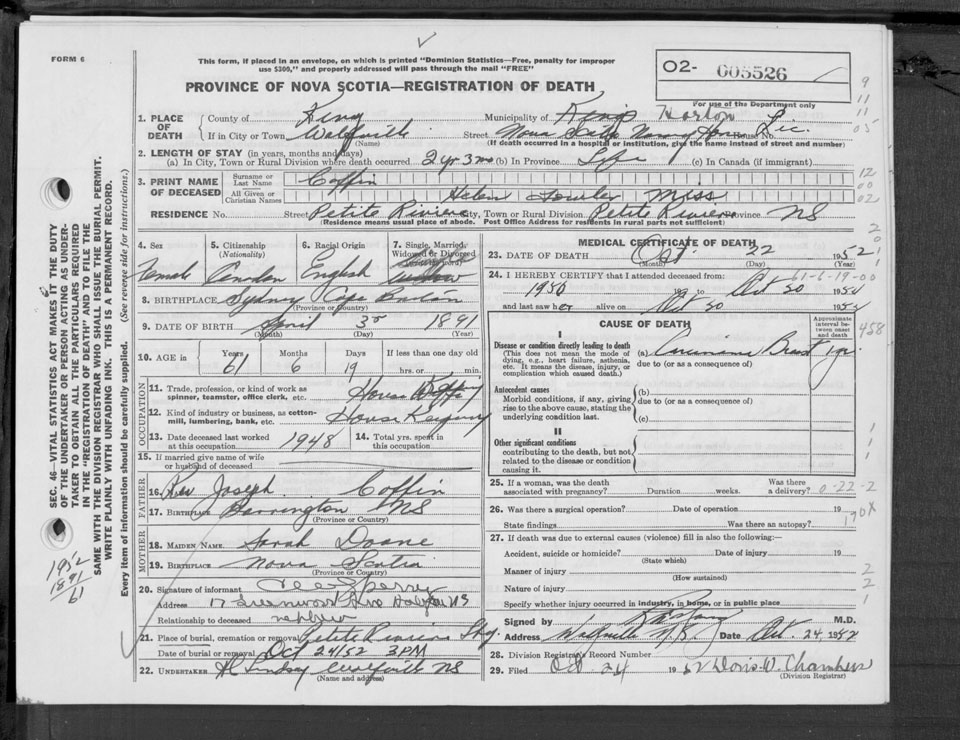 FORM 6
This form, if placed in an envelope, on which is printed "Dominion Statistics—Free, penalty for improper
use $300," and properly addressed will pass through the mail "FREE"
02- 005526
PROVINCE OF NOVA SCOTIA—REGISTRATION OF DEATH
For use of the Department only
1. PLACE OF DEATH
County of Municipality of Kings Horton
If in City or Town Wolfville Street Nova Scotia House No. Lic.
(Name) (If death occurred in a hospital or institution, give the name instead of street and number)
2. LENGTH OF STAY (in years, months and days)
(a) In City, Town or Rural Division where death occurred 2 yr 3 mo (b) In Province Life (c) In Canada (if immigrant)
3. PRINT NAME OF DECEASED
Surname or Last Name Coffin
All Given or Christian Names Helen Fowler Miss
RESIDENCE No. Street Petite Riviere City, Town or Rural Division Petite Riviere Province NS
(Residence means usual place of abode. Post Office Address for residents in rural parts not sufficient)
4. Sex Female
5. Citizenship (Nationality) Canadian
6. Racial Origin English
7. Single, Married, Widowed or Divorced
8. BIRTHPLACE Sydney Cape Breton
(Province or Country)
9. DATE OF BIRTH April 3 1891
(Month) (Day) (Year)
10. AGE in Years 61 Months 6 Days 19 If less than one day old hrs. or min.
OCCUPATION
11. Trade, profession, or kind of work as
spinner, teamster, office clerk, etc. House
12. Kind of industry or business, as cotton-
mill, lumbering, bank, etc. House Keeping
13. Date deceased last worked at this occupation 1948 14. Total yrs. spent in this occupation
15. If married give name of wife
or husband of deceased
FATHER
16. Rev Joseph Coffin
17. Birthplace Barrington NS
(Province or Country)
MOTHER
18. MAIDEN NAME Sarah Doane
19. BIRTHPLACE Nova Scotia
(Province or Country)
20. Signature of informant Perry
Address 17 Greenwood Ave Halifax NS
Relationship to deceased nephew
21. Place of burial, cremation or removal Petite Riviere
Date of burial or removal Oct 24/52 3PM
22. UNDERTAKER Lindsay Wolfville NS
(Name and address)
MEDICAL CERTIFICATE OF DEATH
23. DATE OF DEATH Oct. 22 1952
(Month) (Day)
24. I HEREBY CERTIFY that I attended deceased from:
61-6-19-00
1950 to Oct 20 1952
and last saw her alive on Oct 20 1952
CAUSE OF DEATH
Approximate interval between onset and death
I
Disease or condition directly leading to death
(This does not mean the mode of
dying, e.g., heart failure, asthenia,
etc. It means the disease, injury, or
complication which caused death.)
(a) Carcinoma Breast 1 yr.
due to (or as a consequence of)
Antecedent causes
Morbid conditions, if any, giving
rise to the above cause, stating the
underlying condition last.
(b)
due to (or as a consequence of)
(c)
II
Other significant conditions
contributing to the death, but not
related to the disease or condition
causing it.
25. If a woman, was the death
associated with pregnancy? Duration weeks. Was there a delivery? 0-22-2
26. Was there a surgical operation? Date of operation 19
State findings Was there an autopsy? 190X
27. If death was due to external causes (violence) fill in also the following:—
Accident, suicide or homicide? Date of injury 19
(State which)
Manner of injury
(How sustained)
Nature of injury
Specify whether injury occurred in industry, in home, or in public place
Signed by M.D.
Address Wolfville N.S. Date Oct. 24 1952
28. Division Registrar's Record Number
29. Filed Oct 24 1952 Doris W. Chambers
(Division Registrar)
SEC. 46—VITAL STATISTICS ACT MAKES IT THE DUTY
OF THE UNDERTAKER OR PERSON ACTING AS UNDER-
TAKER TO OBTAIN ALL THE PARTICULARS REQUIRED
IN THE "REGISTRATION OF DEATH" AND TO FILE THE
SAME WITH THE DIVISION REGISTRAR WHO SHALL ISSUE THE BURIAL PERMIT.
WRITE PLAINLY WITH UNFADING INK. THIS IS A PERMANENT RECORD.
Every item of information should be carefully supplied. (See reverse side for instructions.)
1952
1891
61
9
11
11
05
12
00
02
2
0
1
1
458
1
1
1
2
2
1